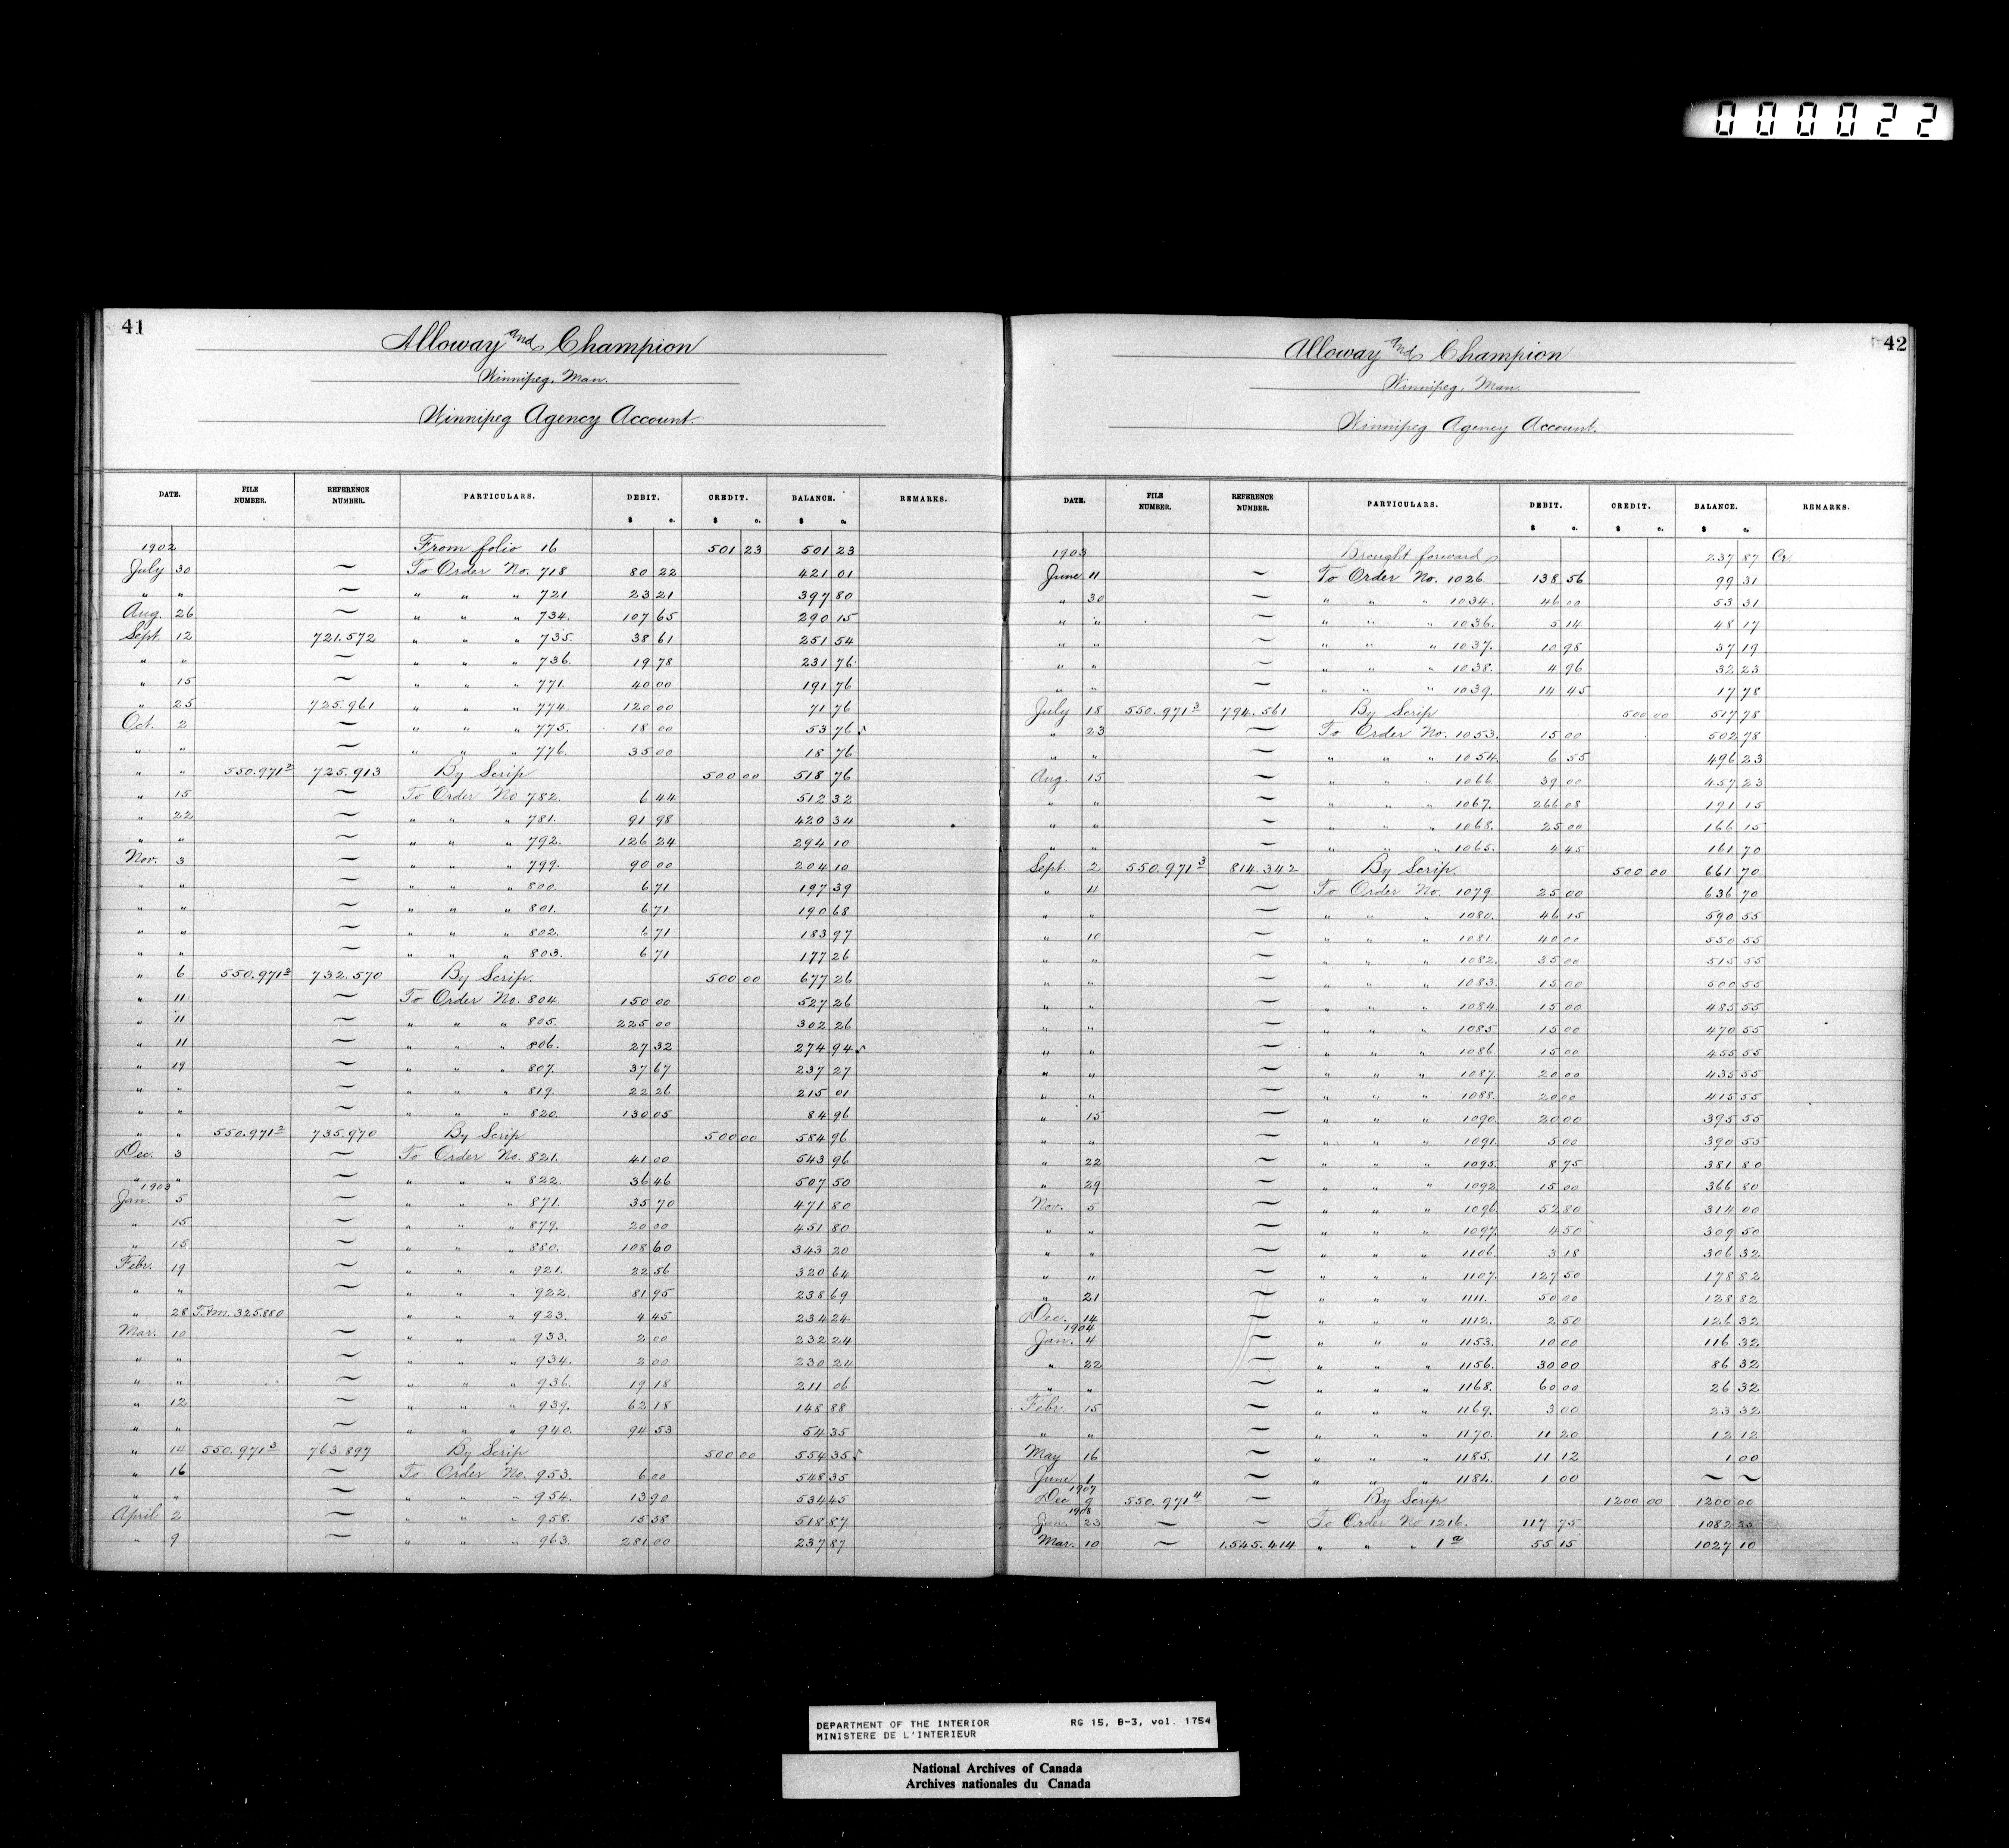 000022
41
Alloway and Champion
Winnipeg, Man.
Winnipeg Agency Account.
DATE. FILE NUMBER. REFERENCE NUMBER. PARTICULARS. DEBIT. CREDIT. BALANCE. REMARKS.
$ c. $ c. $ c.
1902 From folio 16 501 23 501 23
July 30 ~ To Order No. 718 80 22 421 01
" " ~ " " " 721 23 21 397 80
Aug. 26 ~ " " " 734. 107 65 290 15
Sept. 12 721.572 " " " 735. 38 61 251 54
" " ~ " " " 736. 19 78 231 76
" 15 ~ " " " 771. 40 00 191 76
" 25 725.961 " " " 774. 120 00 71 76
Oct. 2 ~ " " " 775. 18 00 53 76
" " ~ " " " 776. 35 00 18 76
" " 550.971² 725.913 By Scrip 500 00 518 76
" 15 ~ To Order No 782. 6 44 512 32
" 22 ~ " " " 781. 91 98 420 34
" " ~ " " " 792. 126 24 294 10
Nov. 3 ~ " " " 799. 90 00 204 10
" " ~ " " " 800. 6 71 197 39
" " ~ " " " 801. 6 71 190 68
" " ~ " " " 802. 6 71 183 97
" " ~ " " " 803. 6 71 177 26
" 6 550.971² 732.570 By Scrip. 500 00 677 26
" 11 ~ To Order No. 804. 150 00 527 26
" 11 ~ " " " 805. 225 00 302 26
" 11 ~ " " " 806. 27 32 274 94
" 19 ~ " " " 807. 37 67 237 27
" " ~ " " " 819. 22 26 215 01
" " ~ " " " 820. 130 05 84 96
" " 550.971² 735.970 By Scrip 500 00 584 96
Dec. 3 ~ To Order No. 821. 41 00 543 96
" " ~ " " " 822. 36 46 507 50
1903
Jan. 5 ~ " " " 871. 35 70 471 80
" 15 ~ " " " 879. 20 00 451 80
" 15 ~ " " " 880. 108 60 343 20
Febr. 19 ~ " " " 921. 22 56 320 64
" " ~ " " " 922. 81 95 238 69
" 28 325880 " " " 923. 4 45 234 24
Mar. 10 ~ " " " 933. 2 00 232 24
" " ~ " " " 934. 2 00 230 24
" " ~ " " " 936. 19 18 211 06
" 12 ~ " " " 939. 62 18 148 88
" " ~ " " " 940. 94 53 54 35
" 14 550.971³ 763.897 By Scrip 500 00 554 35
" 16 ~ To Order No. 953. 6 00 548 35
" " ~ " " " 954. 13 90 534 45
April 2 ~ " " " 958. 15 58 518 87
" 9 ~ " " " 963. 281 00 237 87
42
Alloway and Champion
Winnipeg, Man.
Winnipeg Agency Account.
DATE. FILE NUMBER. REFERENCE NUMBER. PARTICULARS. DEBIT. CREDIT. BALANCE. REMARKS.
$ c. $ c. $ c.
1903 Brought forward 237 87 Cr.
June 11 ~ To Order No. 1026. 138 56 99 31
" 30 ~ " " " 1034. 46 00 53 31
" " ~ " " " 1036. 5 14 48 17
" " ~ " " " 1037. 10 98 37 19
" " ~ " " " 1038. 4 96 32 23
" " ~ " " " 1039. 14 45 17 78
July 18 550.971³ 794.561 By Scrip 500 00 517 78
" 23 ~ To Order No. 1053. 15 00 502 78
" " ~ " " " 1054. 6 55 496 23
Aug. 15 ~ " " " 1066. 39 00 457 23
" " ~ " " " 1067. 266 08 191 15
" " ~ " " " 1068. 25 00 166 15
" " ~ " " " 1065. 4 45 161 70
Sept. 2 550.971³ 814.342 By Scrip 500 00 661 70
" 11 ~ To Order No. 1079. 25 00 636 70
" " ~ " " " 1080. 46 15 590 55
" 10 ~ " " " 1081. 40 00 550 55
" " ~ " " " 1082. 35 00 515 55
" " ~ " " " 1083. 15 00 500 55
" " ~ " " " 1084 15 00 485 55
" " ~ " " " 1085. 15 00 470 55
" " ~ " " " 1086. 15 00 455 55
" " ~ " " " 1087. 20 00 435 55
" " ~ " " " 1088. 20 00 415 55
" 15 ~ " " " 1090. 20 00 395 55
" " ~ " " " 1091. 5 00 390 55
" 22 ~ " " " 1095. 8 75 381 80
" 29 ~ " " " 1092. 15 00 366 80
Nov. 5 ~ " " " 1096. 52 80 314 00
" " ~ " " " 1097. 4 50 309 50
" " ~ " " " 1106. 3 18 306 32
" " ~ " " " 1107. 127 50 178 82
" 21 ~ " " " 1111. 50 00 128 82
Dec. 14 ~ " " " 1112. 2 50 126 32
1904
Jan. 4 ~ " " " 1153. 10 00 116 32
" 22 ~ " " " 1156. 30 00 86 32
" " ~ " " " 1168. 60 00 26 32
Febr 15 ~ " " " 1169. 3 00 23 32
" " ~ " " " 1170. 11 20 12 12
May 16 ~ " " " 1185. 11 12 1 00
June 1 ~ " " " 1184. 1 00 ~ ~
1907
Dec 9 550.971⁴ ~ By Scrip 1200 00 1200 00
1908
Jan. 23 ~ ~ To Order No 1216. 117 75 1082 25
Mar. 10 ~ 1.545.414 " " " 1ª 55 15 1027 10
DEPARTMENT OF THE INTERIOR RG 15, B-3, vol. 1754
MINISTERE DE L'INTERIEUR
National Archives of Canada
Archives nationales du Canada